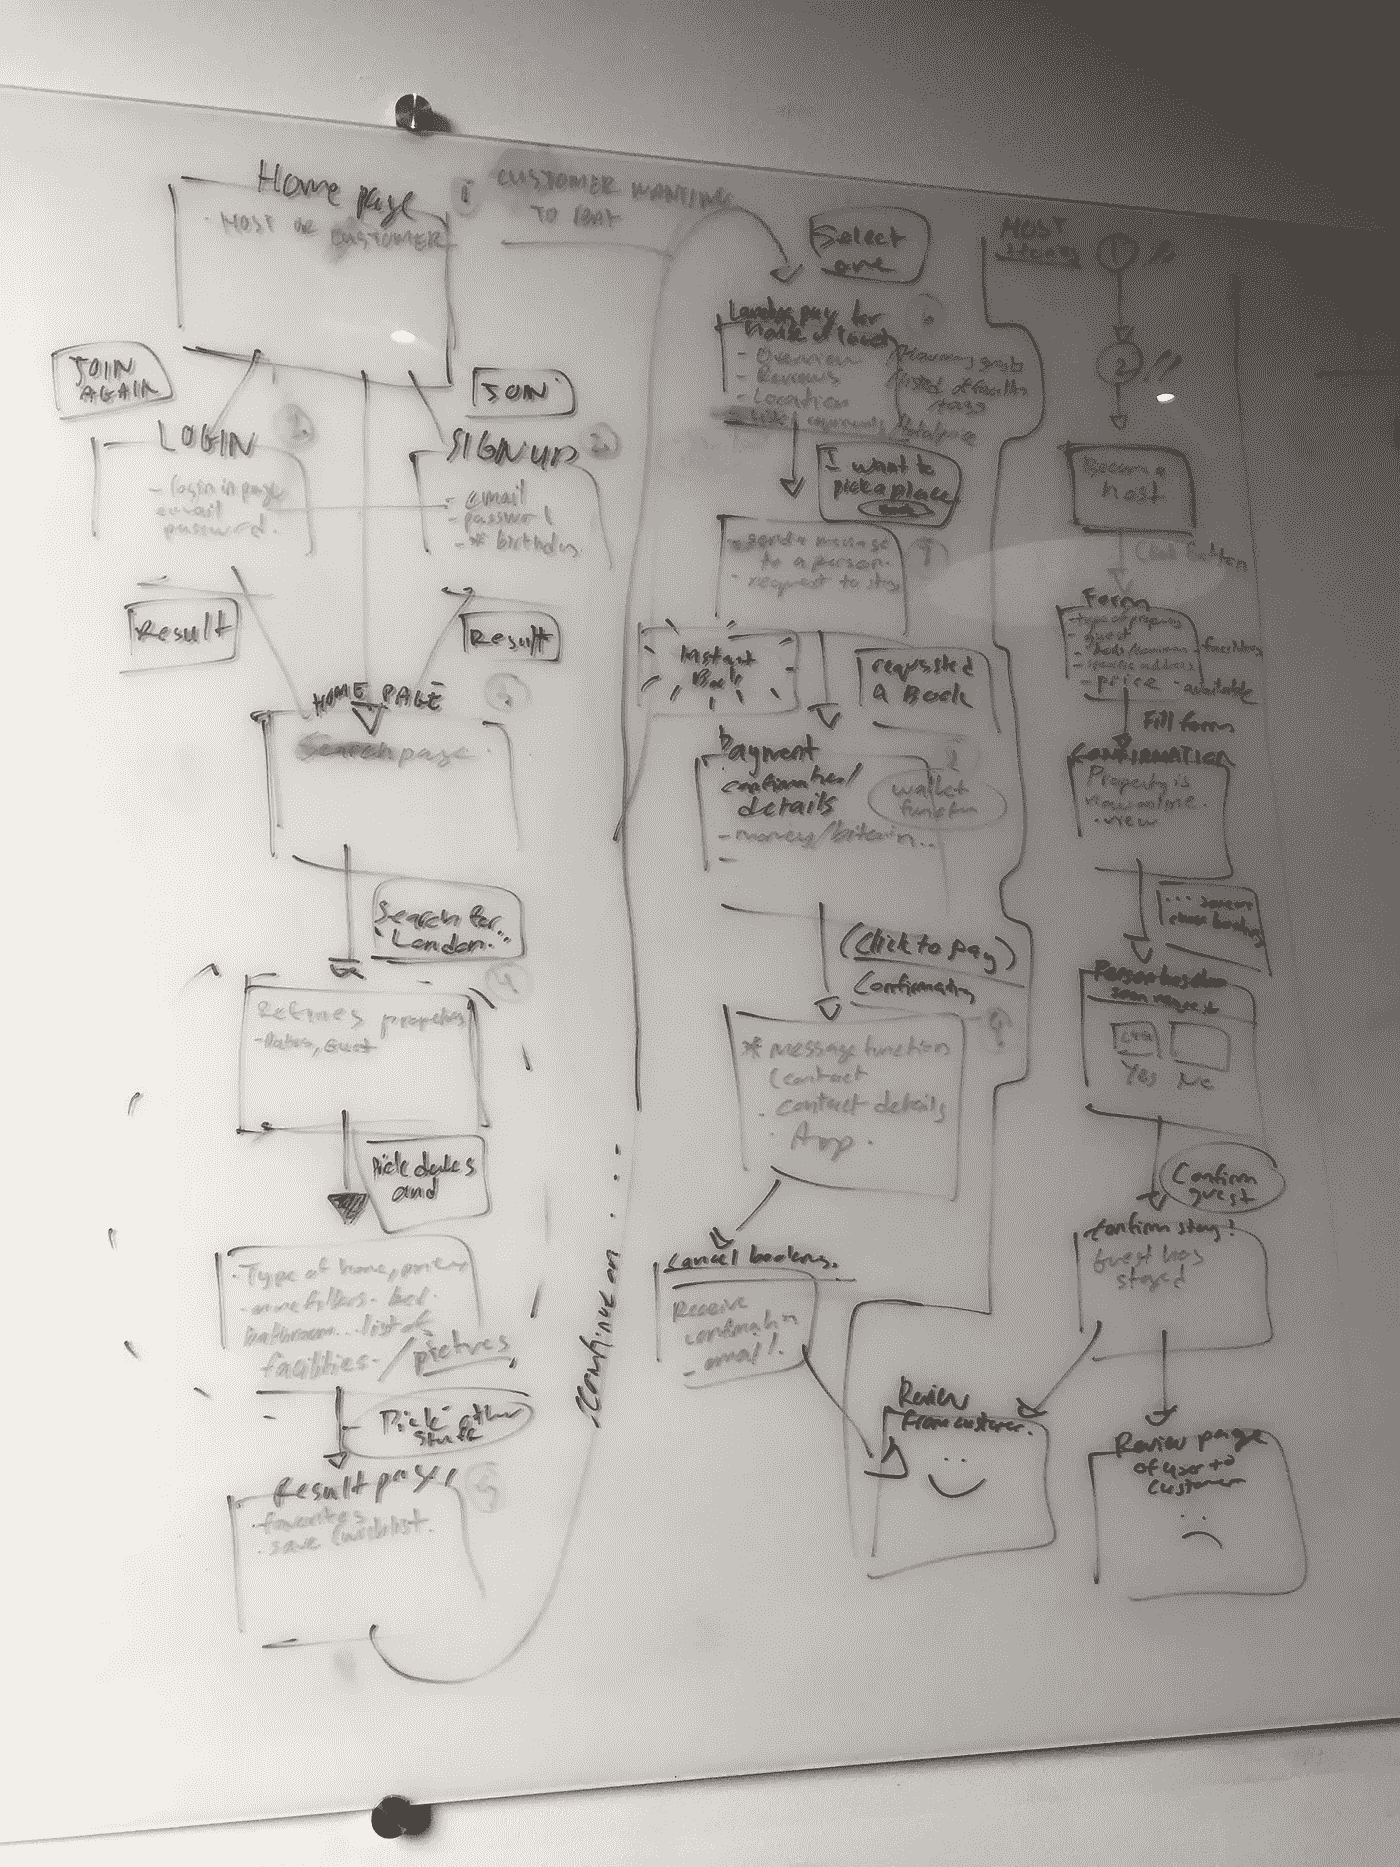 Home page
· HOST OR CUSTOMER
1
CUSTOMER WANTING
TO RENT
JOIN
AGAIN
JOIN
LOGIN
2
- login in page
email
password.
SIGN UP
2
- email
- password
- * birthday
Result
Result
HOME PAGE
Search page
Search for
"London..."
4
Refines properties
- Dates, Guest
Pick dates
and
· Type of home, prices
- more filters - bed.
bathroom... list of
facilities - / pictures
- Pick other
stuff
Result page
5
- favorites
· save (wishlist.
continue on ...
Select
one
Landing page for
- Overview
- Reviews
- Location
I want to
pick a place
- send a message
to a person.
- request to stay
Instant
Book
requested
a Book
Payment
confirmation/
details
- money/bitcoin...
-
wallet
function
(Click to pay)
Confirmation
* message function
(contact
· contact details
· App.
Cancel booking.
Receive
confirmation
- email!
Review
from customer.
HOST
1
2
Become a
host
Click Button
Form
- type of property
- guest
- facilities
- specific address
- price - available
Fill form
CONFIRMATION
Property is
now online.
· view
Yes No
Confirm
guest
Confirm stay!
Guest has
stayed
Review page
of user to
customer